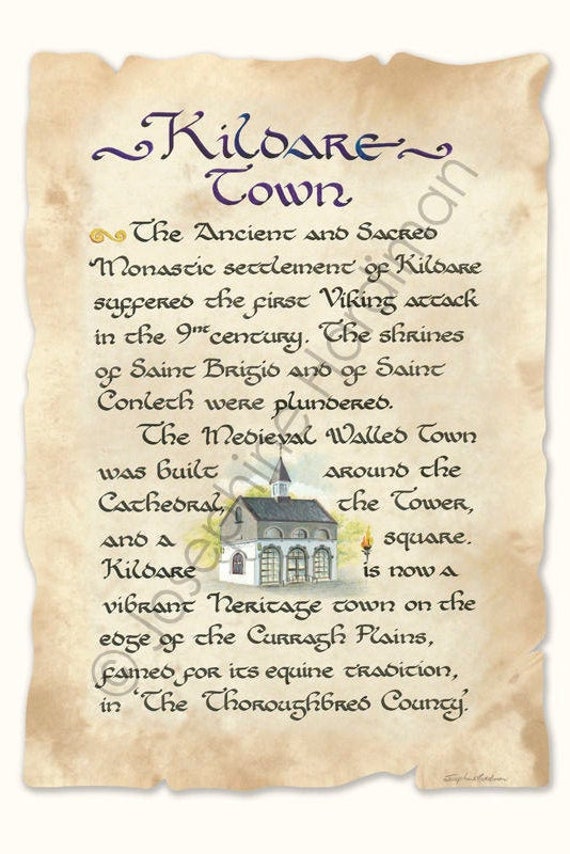 Kildare
Town
The Ancient and Sacred
Monastic settlement of Kildare
suffered the first Viking attack
in the 9th century. The shrines
of Saint Brigid and of Saint
Conleth were plundered.
The Medieval Walled Town
was built around the
Cathedral, the Tower,
and a square.
Kildare is now a
vibrant Heritage town on the
edge of the Curragh Plains,
famed for its equine tradition,
in 'The Thoroughbred County'.
© Josephine Hardiman